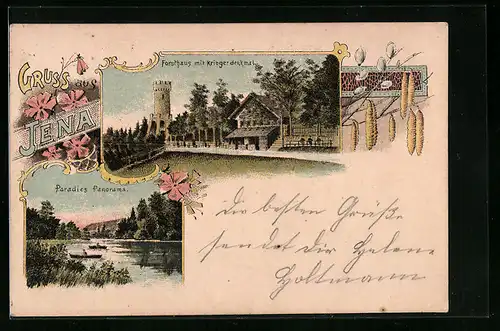 Gruss aus
JENA
Forsthaus mit Kriegerdenkmal.
Paradies Panorama.
Die besten Grüße
sendet dir Helene
Holtmann